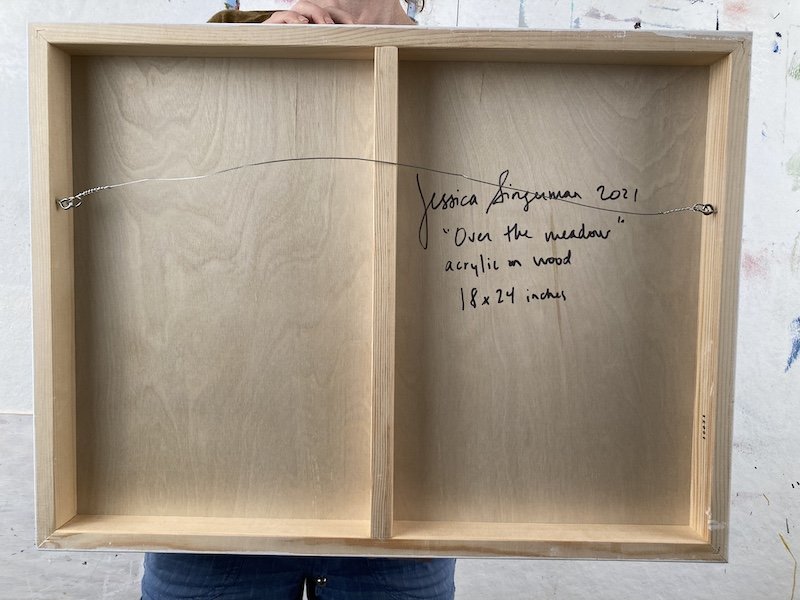 Jessica Singerman 2021
"Over the meadow"
acrylic on wood
18 x 24 inches